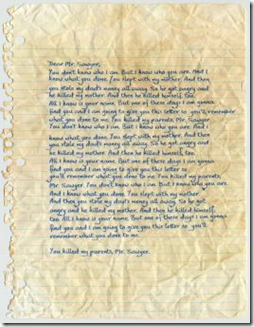 Dear Mr. Sawyer,
You don't know who I am. But I know who you are. And I
know what you done. You slept with my mother. And then
you stole my dad's money all away. So he got angry and
he killed my mother. And then he killed himself, too.
All I know is your name. But one of these days I am gonna
find you and I am going to give you this letter so you'll remember
what you done to me. You killed my parents, Mr. Sawyer.
You don't know who I am. But I know who you are. And I
know what you done. You slept with my mother. And then
you stole my dad's money all away. So he got angry and
he killed my mother. And then he killed himself, too.
All I know is your name. But one of these days I am gonna
find you and I am going to give you this letter so
you'll remember what you done to me. You killed my parents,
Mr. Sawyer. You don't know who I am. But I know who you are.
And I know what you done. You slept with my mother.
And then you stole my dad's money all away. So he got
angry and he killed my mother. And then he killed himself,
too. All I know is your name. But one of these days I am gonna
find you and I am going to give you this letter so you'll
remember what you done to me.
You killed my parents, Mr. Sawyer.